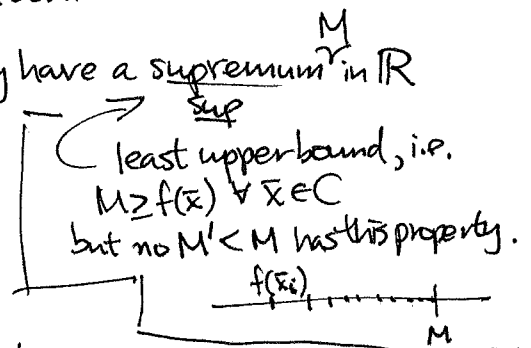 have a supremum M in ℝ
sup
least upper bound, i.e.
M ≥ f(x̄) ∀ x̄ ∈ C
but no M' < M has this property.
f(x̄ᵢ)
M